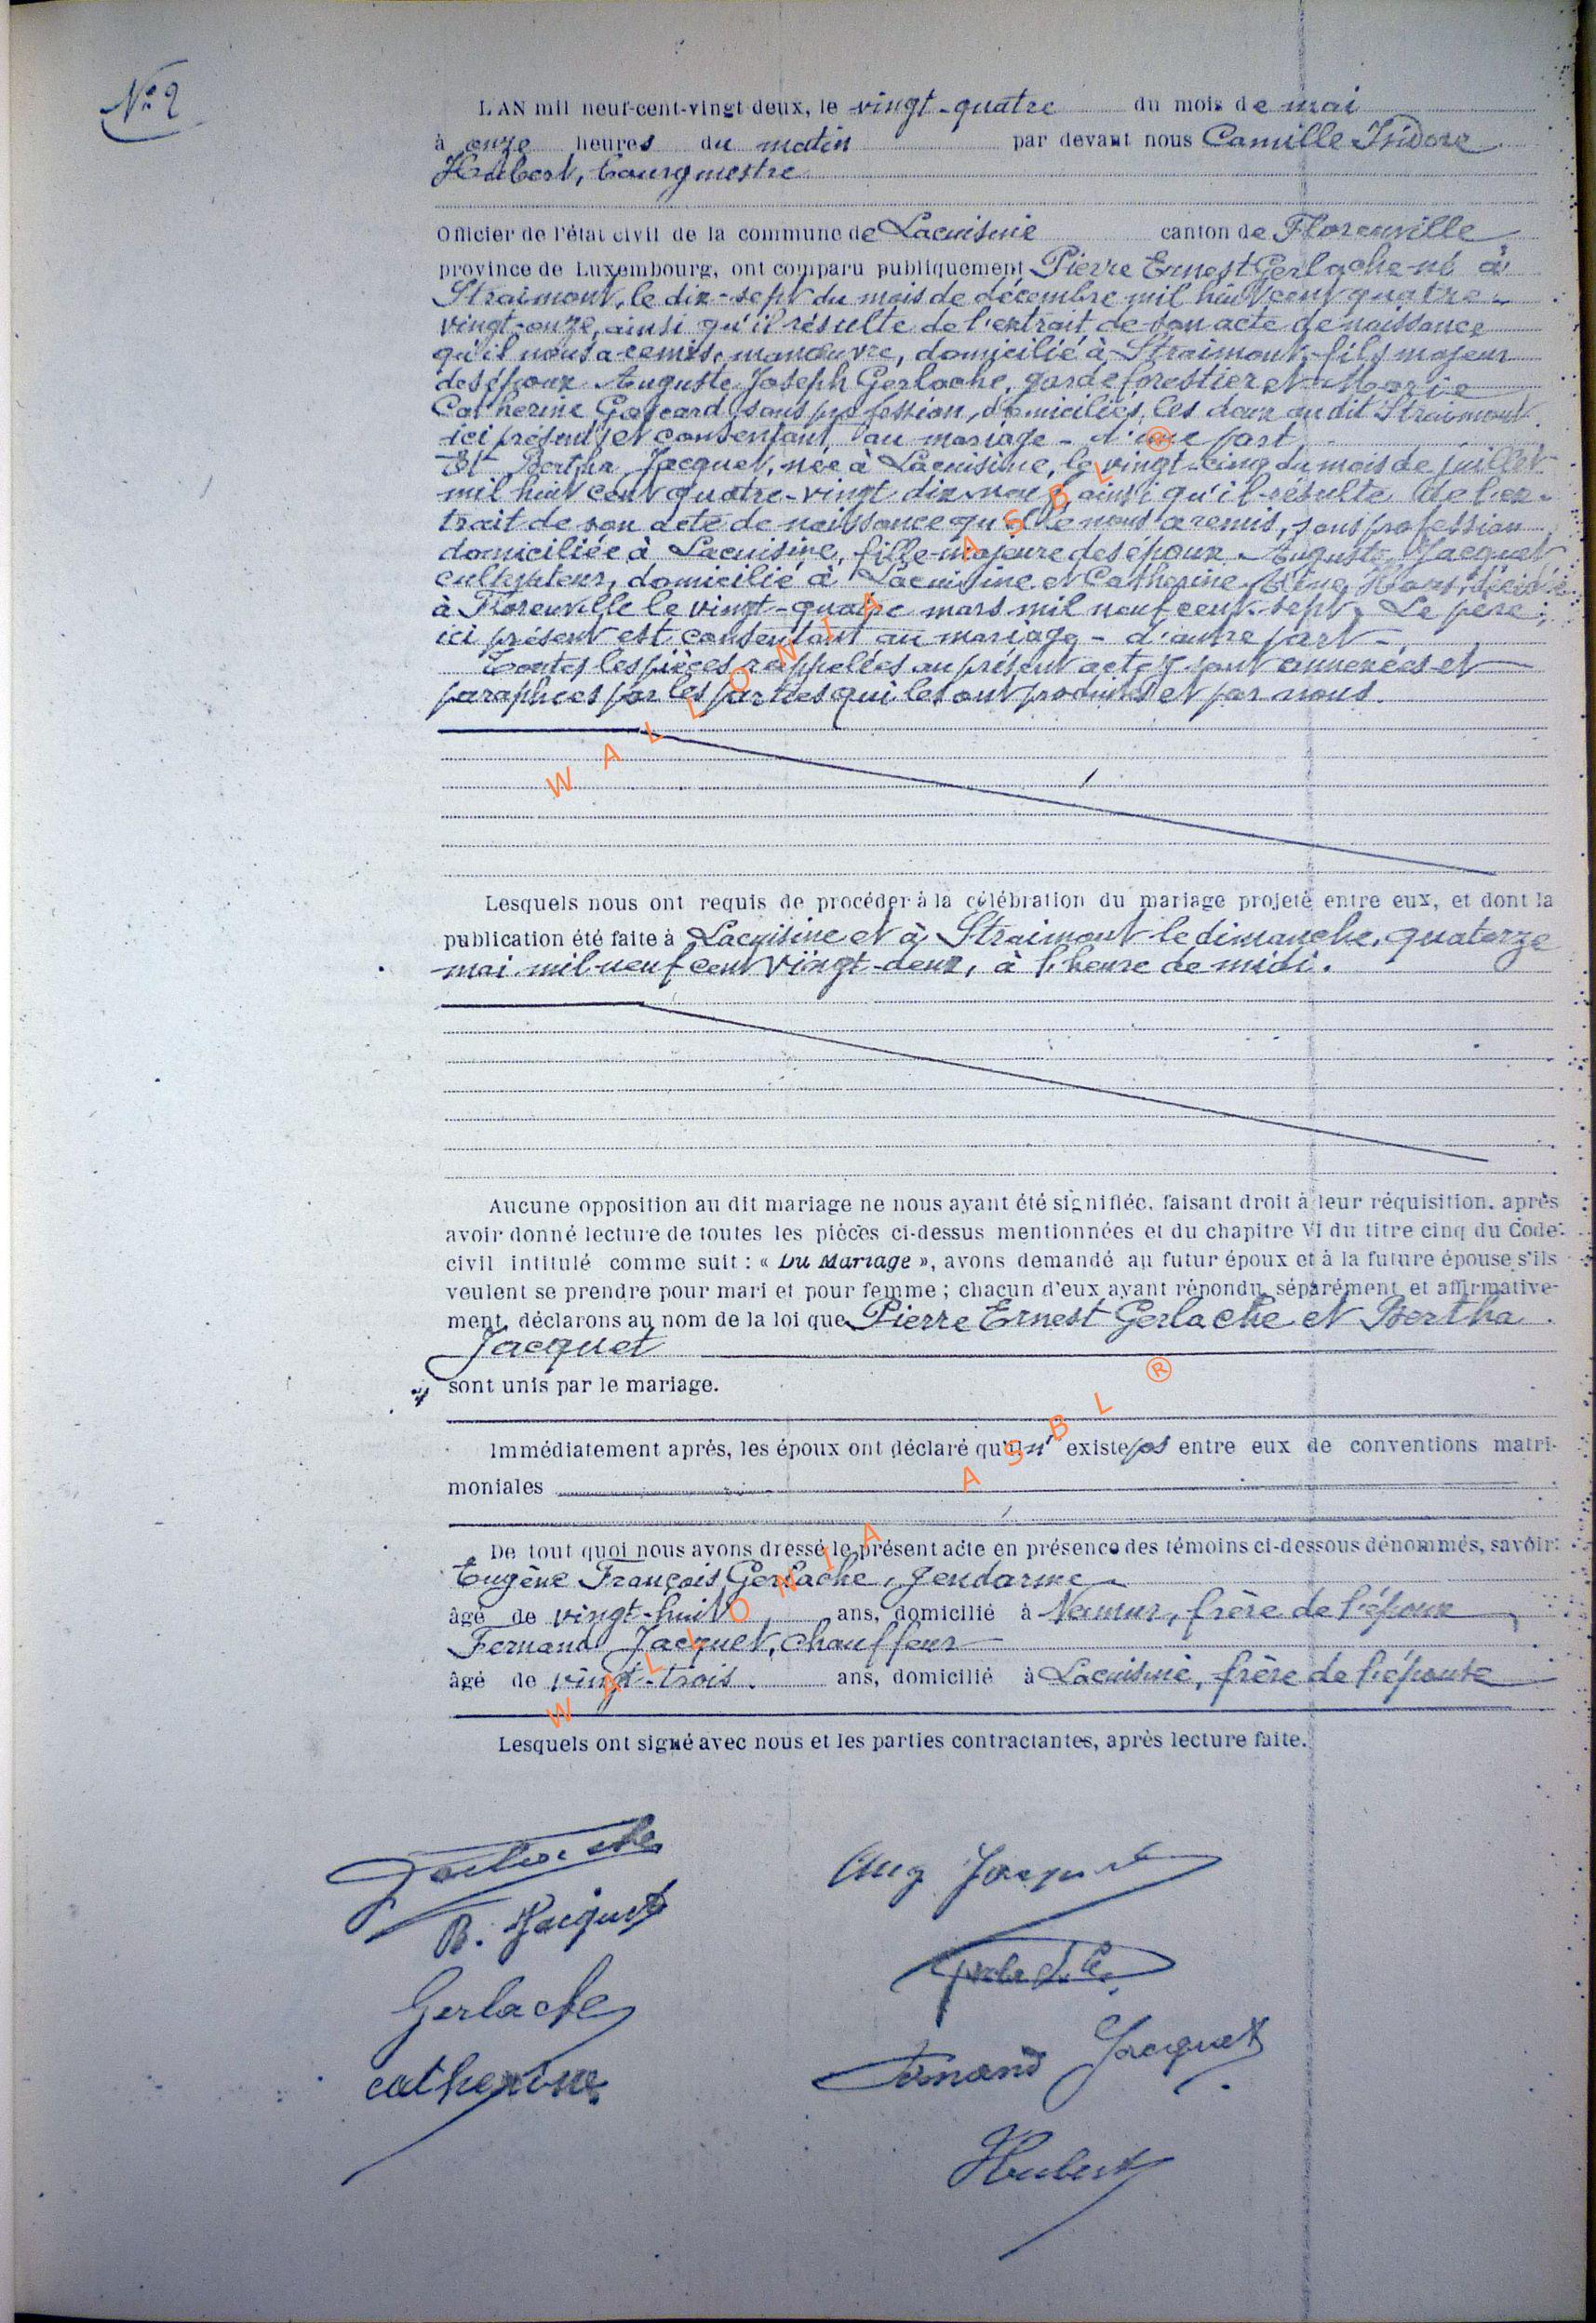 N° 2
L'AN mil neuf-cent-vingt deux, le vingt-quatre du mois de mai
à onze heures du matin par devant nous Camille Isidore
Hubert, bourgmestre
Officier de l'état civil de la commune de Lacuisine canton de Florenville
province de Luxembourg, ont comparu publiquement Pierre Ernest Gerlache né à
Straimont, le dix-sept du mois de décembre mil huit cent quatre-
vingt-onze, ainsi qu'il résulte de l'extrait de son acte de naissance
qu'il nous a remis, manœuvre, domicilié à Straimont, fils majeur
des époux Auguste Joseph Gerlache, garde forestier et Marie
Catherine sans profession, domiciliés les deux au dit Straimont
ici présents et consentant au mariage - d'une part
Et Bertha Jacquet, née à Lacuisine, le vingt-cinq du mois de juillet
mil huit cent quatre-vingt dix-neuf, ainsi qu'il résulte de l'ex-
trait de son acte de naissance qu'elle nous a remis, sans profession
domiciliée à Lacuisine, fille majeure des époux Auguste Jacquet
cultivateur, domicilié à Lacuisine et Catherine décédée
à Florenville le vingt-quatre mars mil neuf cent sept. Le père,
ici présent est consentant au mariage - d'autre part -
Toutes les pièces rappelées au présent acte y sont annexées et
paraphées par les parties qui les ont produites et par nous.
Lesquels nous ont requis de procéder à la célébration du mariage projeté entre eux, et dont la
publication été faite à Lacuisine et à Straimont le dimanche, quatorze
mai mil neuf cent vingt-deux, à l'heure de midi.
Aucune opposition au dit mariage ne nous ayant été signifiée, faisant droit à leur réquisition, après
avoir donné lecture de toutes les pièces ci-dessus mentionnées et du chapitre VI du titre cinq du Code
civil intitulé comme suit : « Du Mariage », avons demandé au futur époux et à la future épouse s'ils
veulent se prendre pour mari et pour femme ; chacun d'eux ayant répondu séparément et affirmative-
ment, déclarons au nom de la loi que Pierre Ernest Gerlache et Bertha
Jacquet
sont unis par le mariage.
Immédiatement après, les époux ont déclaré qu'il n'existe pas entre eux de conventions matri-
moniales
De tout quoi nous avons dressé le présent acte en présence des témoins ci-dessous dénommés, savoir:
Eugène François Gerlache, gendarme
âgé de vingt-huit ans, domicilié à Namur, frère de l'époux
Fernand Jacquet, chauffeur
âgé de vingt-trois ans, domicilié à Lacuisine, frère de l'épouse
Lesquels ont signé avec nous et les parties contractantes, après lecture faite.
Gerlache
Aug Jacquet
B. Jacquet
Gerlache
Fernand Jacquet
catherine
Hubert
WALLONIA ASBL ®
WALLONIA ASBL ®